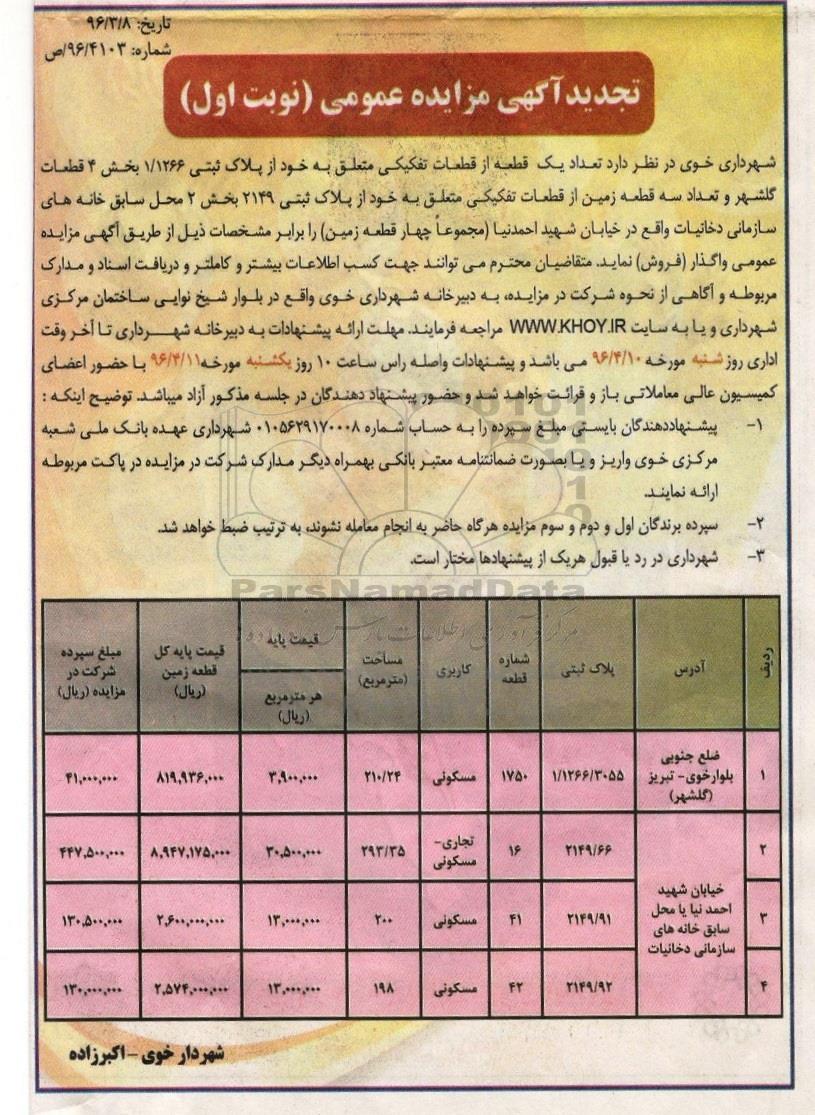 تاریخ: ۹۶/۳/۸
شماره: ۹۶/۴۱۰۳/ص
تجدیدآگهی مزایده عمومی (نوبت اول)
شهرداری خوی در نظر دارد تعداد یک قطعه از قطعات تفکیکی متعلق به خود از پلاک ثبتی ۱/۱۲۶۶ بخش ۴ قطعات
گلشهر و تعداد سه قطعه زمین از قطعات تفکیکی متعلق به خود از پلاک ثبتی ۲۱۴۹ بخش ۲ محل سابق خانه های
سازمانی دخانیات واقع در خیابان شهید احمدنیا (مجموعاً چهار قطعه زمین) را برابر مشخصات ذیل از طریق آگهی مزایده
عمومی واگذار (فروش) نماید. متقاضیان محترم می توانند جهت کسب اطلاعات بیشتر و کاملتر و دریافت اسناد و مدارک
مربوطه و آگاهی از نحوه شرکت در مزایده، به دبیرخانه شهرداری خوی واقع در بلوار شیخ نوایی ساختمان مرکزی
شهرداری و یا به سایت WWW.KHOY.IR مراجعه فرمایند. مهلت ارائه پیشنهادات به دبیرخانه شهرداری تا آخر وقت
اداری روز شنبه مورخه ۹۶/۴/۱۰ می باشد و پیشنهادات واصله راس ساعت ۱۰ روز یکشنبه مورخه ۹۶/۴/۱۱ با حضور اعضای
کمیسیون عالی معاملاتی باز و قرائت خواهد شد و حضور پیشنهاد دهندگان در جلسه مذکور آزاد میباشد. توضیح اینکه :
۱- پیشنهاددهندگان بایستی مبلغ سپرده را به حساب شماره ۰۱۰۵۶۲۹۱۷۰۰۰۸ شهرداری عهده بانک ملی شعبه
مرکزی خوی واریز و یا بصورت ضمانتنامه معتبر بانکی بهمراه دیگر مدارک شرکت در مزایده در پاکت مربوطه
ارائه نمایند.
۲- سپرده برندگان اول و دوم و سوم مزایده هرگاه حاضر به انجام معامله نشوند، به ترتیب ضبط خواهد شد.
۳- شهرداری در رد یا قبول هریک از پیشنهادها مختار است.
ParsNamadData
ردیف آدرس پلاک ثبتی شماره قطعه کاربری مساحت (مترمربع) قیمت پایه هر مترمربع (ریال) قیمت پایه کل قطعه زمین (ریال) مبلغ سپرده شرکت در مزایده (ریال)
۱ ضلع جنوبی بلوارخوی- تبریز (گلشهر) ۱/۱۲۶۶/۳۰۵۵ ۱۷۵۰ مسکونی ۲۱۰/۲۴ ۳,۹۰۰,۰۰۰ ۸۱۹,۹۳۶,۰۰۰ ۴۱,۰۰۰,۰۰۰
۲ خیابان شهید احمد نیا یا محل سابق خانه های سازمانی دخانیات ۲۱۴۹/۶۶ ۱۶ تجاری- مسکونی ۲۹۳/۳۵ ۳۰,۵۰۰,۰۰۰ ۸,۹۴۷,۱۷۵,۰۰۰ ۴۴۷,۵۰۰,۰۰۰
۳ ۲۱۴۹/۹۱ ۴۱ مسکونی ۲۰۰ ۱۳,۰۰۰,۰۰۰ ۲,۶۰۰,۰۰۰,۰۰۰ ۱۳۰,۵۰۰,۰۰۰
۴ ۲۱۴۹/۹۲ ۴۲ مسکونی ۱۹۸ ۱۳,۰۰۰,۰۰۰ ۲,۵۷۴,۰۰۰,۰۰۰ ۱۳۰,۰۰۰,۰۰۰
شهردار خوی -اکبرزاده